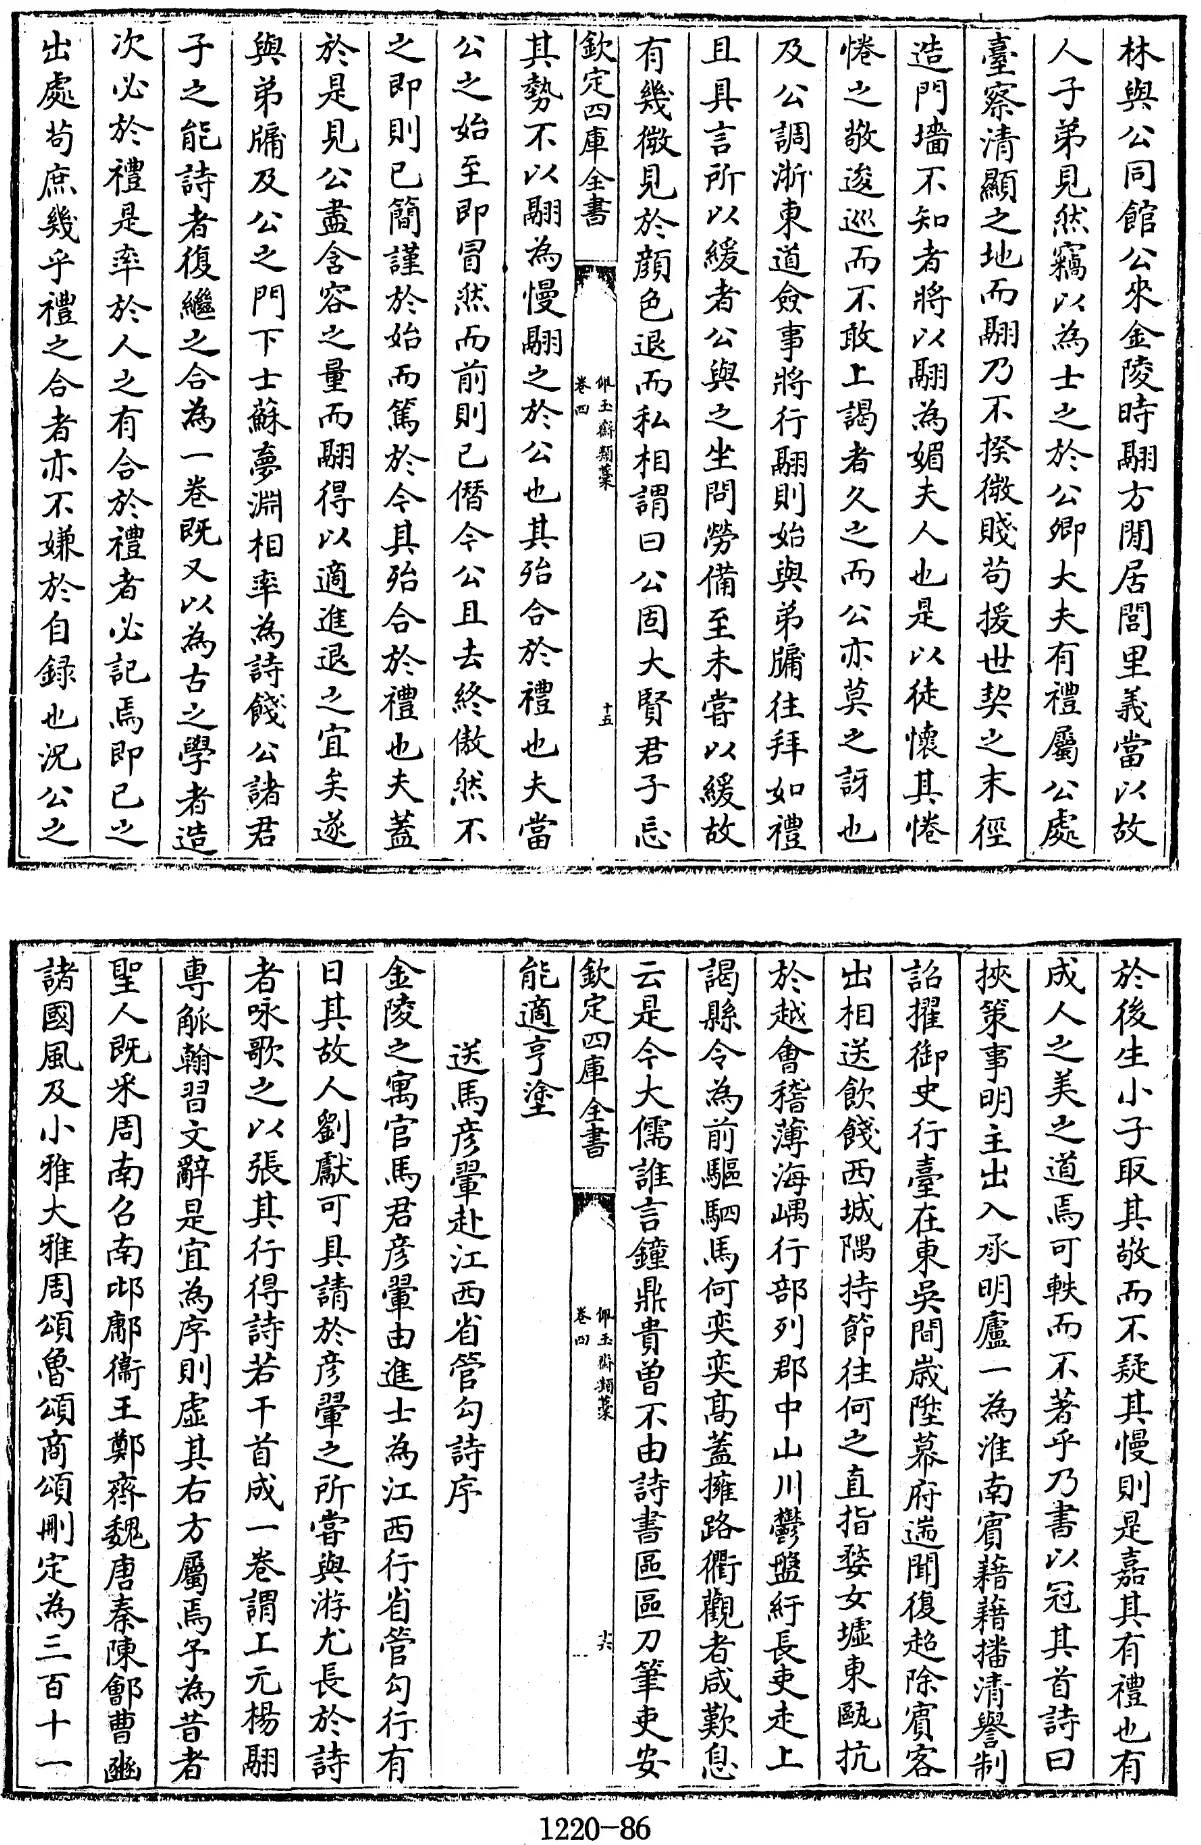 林與公同館公來金陵時翮方閒居閭里義當以故
人子弟見然竊以為士之於公卿大夫有禮屬公處
臺察清顯之地而翮乃不揆微賤茍援世契之末徑
造門墻不知者將以翮為媚夫人也是以徒懷其惓
惓之敬逡巡而不敢上謁者久之而公亦莫之訝也
及公調浙東道僉事將行翮則始與弟牗往拜如禮
且具言所以緩者公與之坐問勞備至未嘗以緩故
有幾微見於顔色退而私相謂曰公固大賢君子忘
欽定四庫全書
佩玉齋類藁
卷四
十五
其勢不以翮為慢翮之於公也其殆合於禮也夫當
公之始至即冒然而前則已僭今公且去終傲然不
之即則已簡謹於始而篤於今其殆合於禮也夫蓋
於是見公盡含容之量而翮得以適進退之宜矣遂
與弟牗及公之門下士蘇夢淵相率為詩餞公諸君
子之能詩者復繼之合為一卷既又以為古之學者造
次必於禮是率於人之有合於禮者必記焉即已之
出處茍庶幾乎禮之合者亦不嫌於自録也況公之
於後生小子取其敬而不疑其慢則是嘉其有禮也有
成人之美之道焉可軼而不著乎乃書以冠其首詩曰
挾策事明主出入承明廬一為淮南賔藉藉播清譽制
詔擢御史行臺在東吳間歳陞幕府遄聞復超除賔客
出相送飲餞西城隅持節往何之直指婺女墟東甌抗
於越會稽薄海嵎行部列郡中山川鬱盤紆長吏走上
謁縣令為前驅駟馬何奕奕髙蓋擁路衢觀者咸歎息
云是今大儒誰言鐘鼎貴曾不由詩書區區刀筆吏安
欽定四庫全書
佩玉齋類藁
卷四
十六
能適亨塗
送馬彦翬赴江西省管勾詩序
金陵之寓官馬君彦翬由進士為江西行省管勾行有
日其故人劉獻可具請於彦翬之所嘗與游尤長於詩
者咏歌之以張其行得詩若干首成一卷謂上元楊翮
專觚翰習文辭是宜為序則虛其右方屬焉予為昔者
聖人既采周南召南邶鄘衞王鄭齊魏唐秦陳鄶曹豳
諸國風及小雅大雅周頌魯頌商頌刪定為三百十一
1220-86